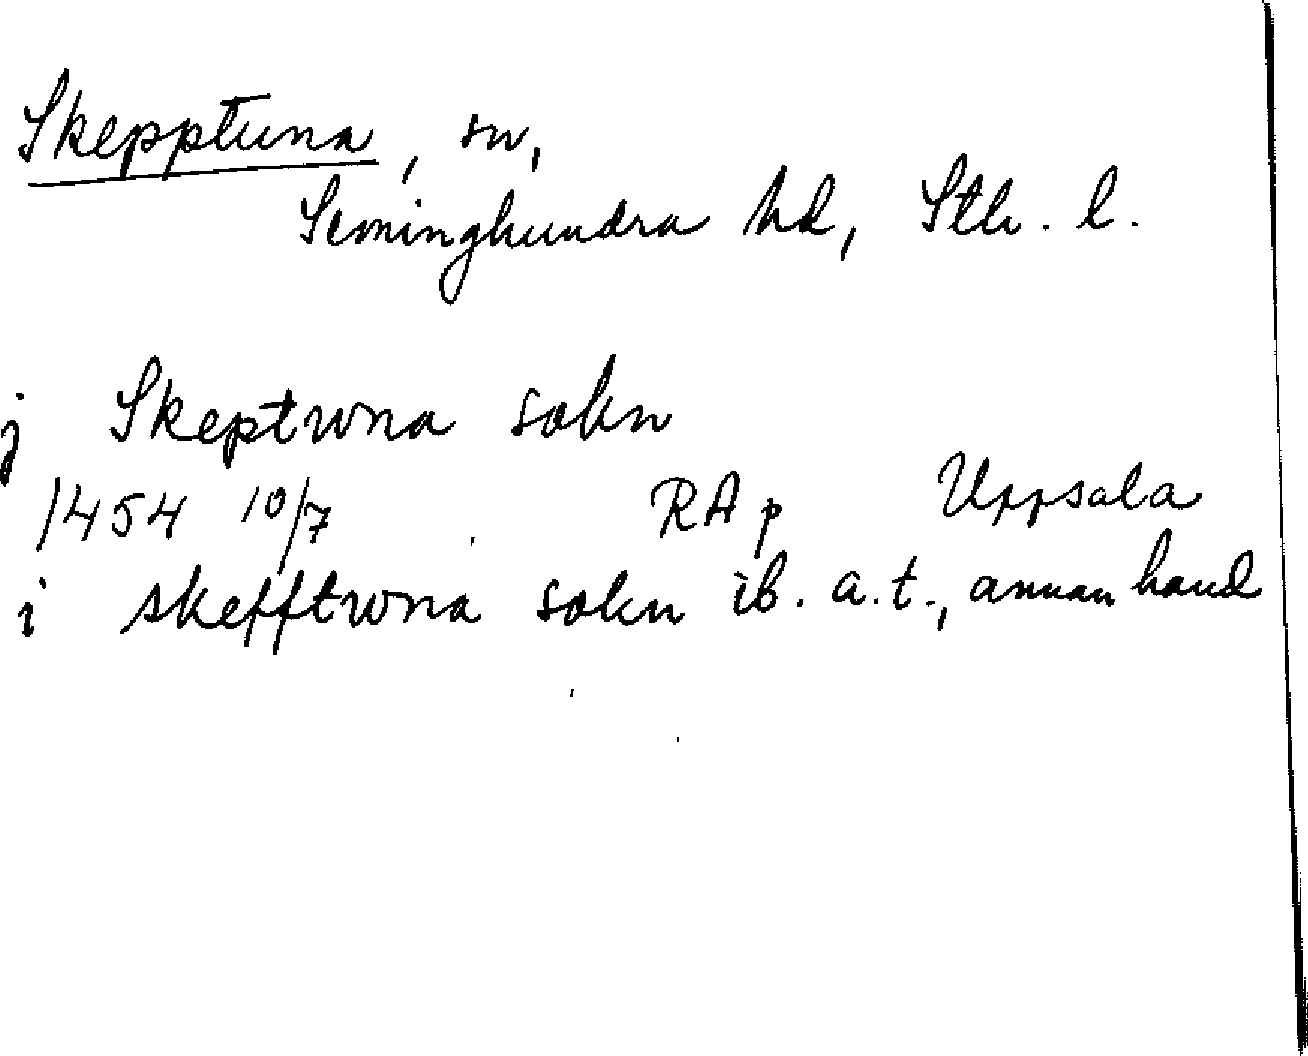 Skepptuna, sn,
Seminghundra hd, Sth. l.
j Skeptwna sokn
1454 10/7 RAp Uppsala
i skefftwna sokn ib. a.t., annan hand